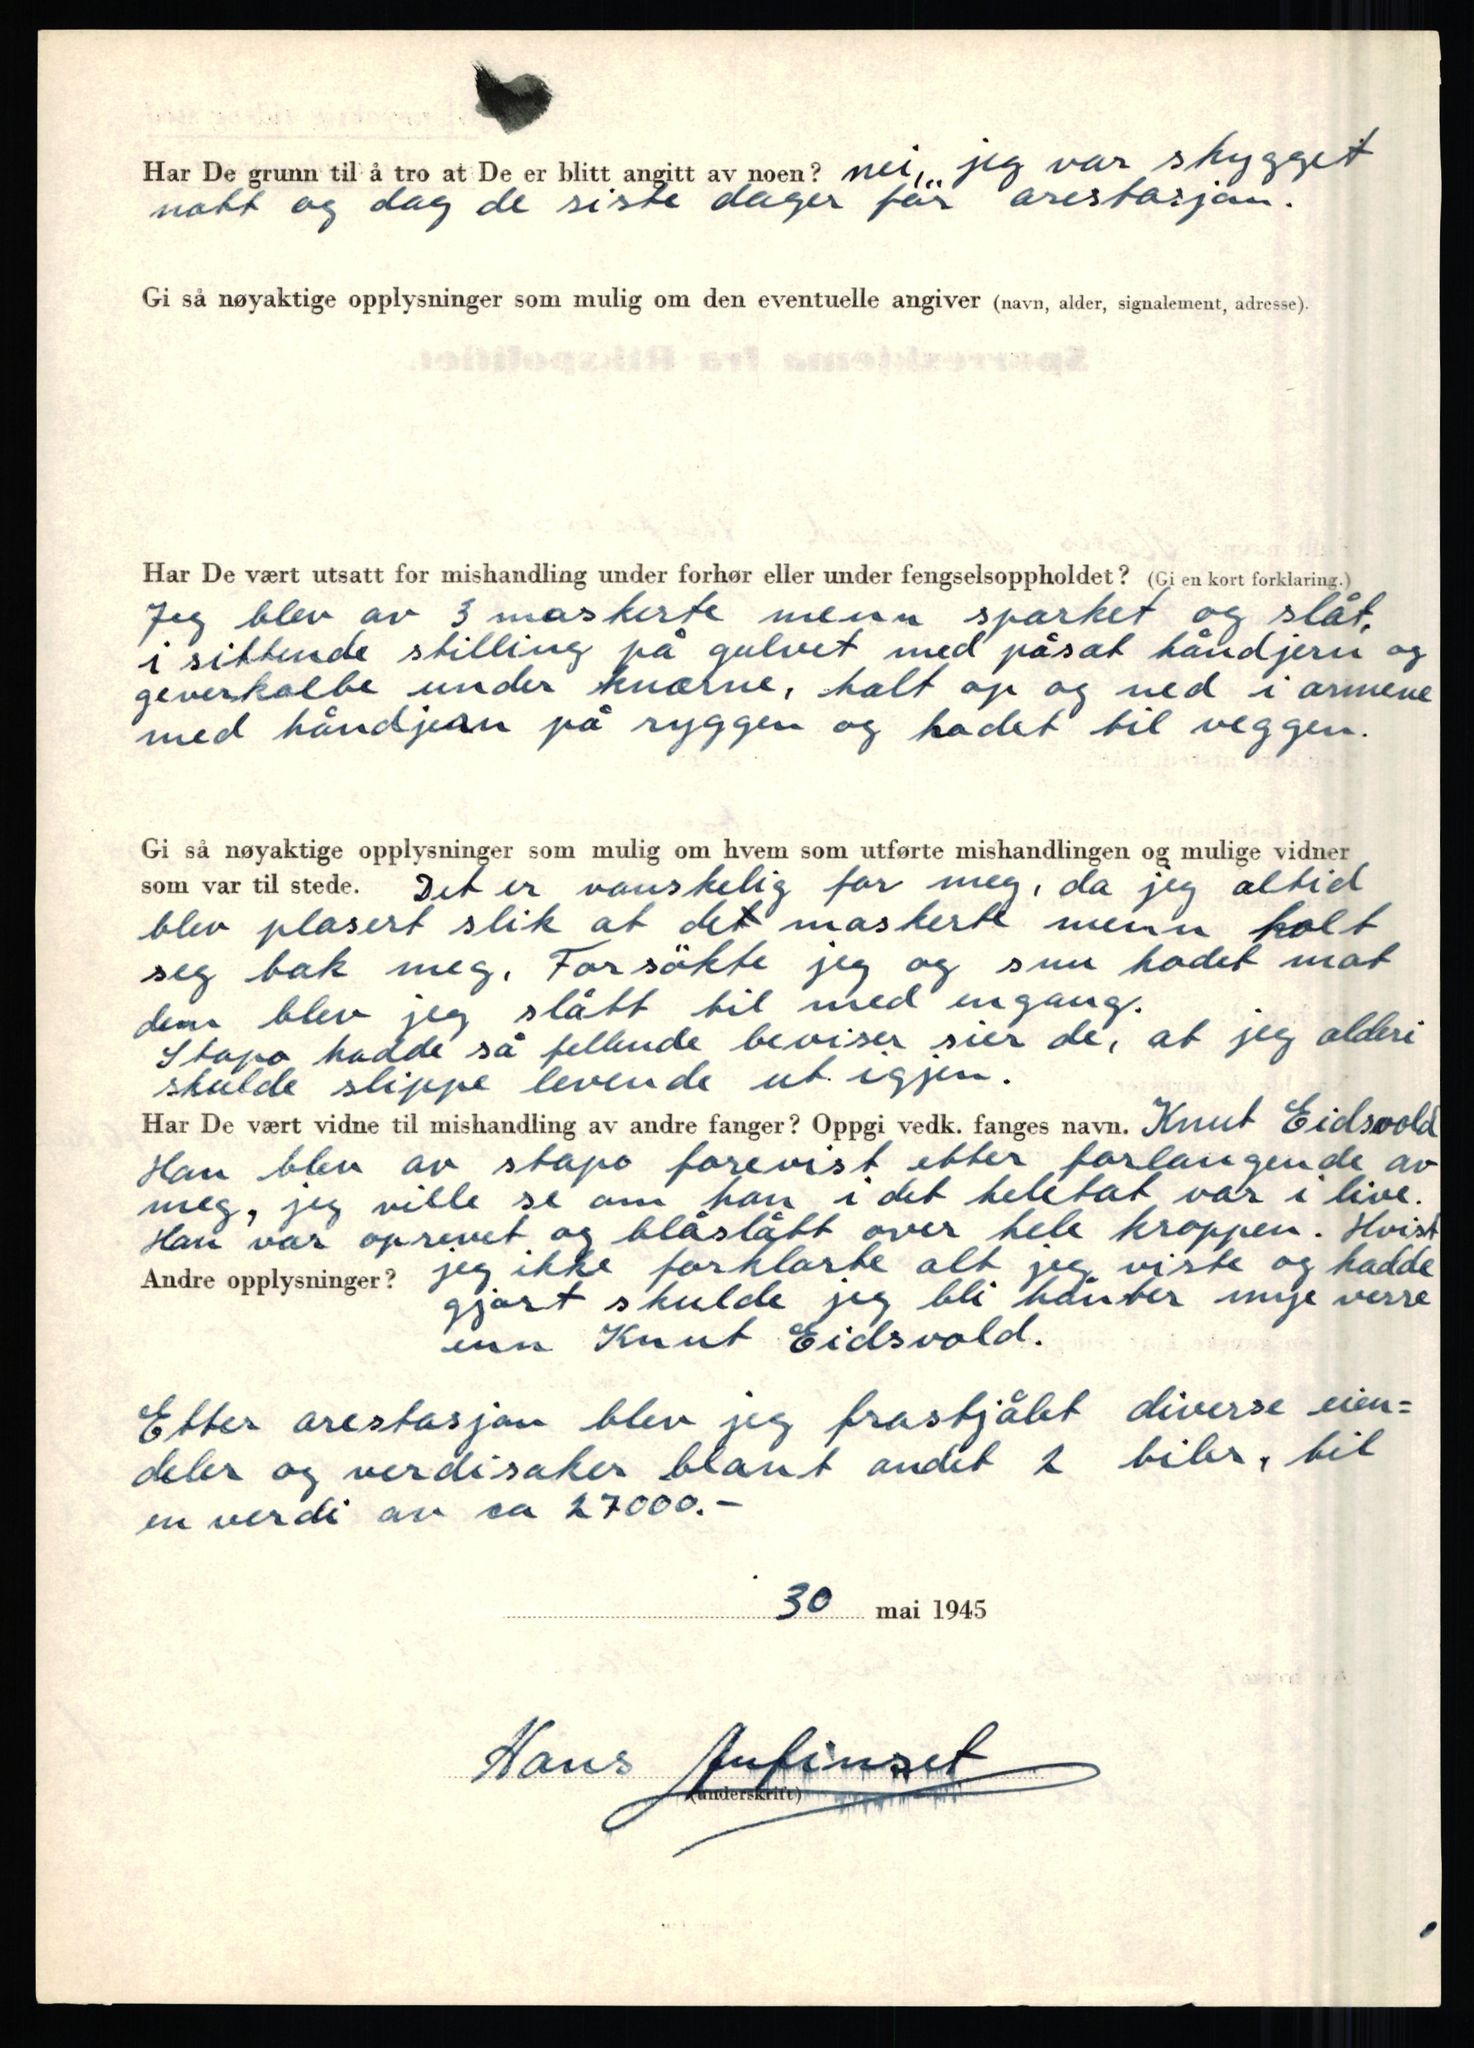 Har De grunn til å tro at De er blitt angitt av noen? nei, jeg var skygget
natt og dag de siste dager før arestasjon.
Gi så nøyaktige opplysninger som mulig om den eventuelle angiver (navn, alder, signalement, adresse).
Har De vært utsatt for mishandling under forhør eller under fengselsoppholdet? (Gi en kort forklaring.)
Jeg blev av 3 maskerte menn sparket og slåt,
i sittende stilling på gulvet med påsat håndjern og
geverkolbe under knærne, halt op og ned i armene
med håndjern på ryggen og hodet til veggen.
Gi så nøyaktige opplysninger som mulig om hvem som utførte mishandlingen og mulige vidner
som var til stede. Det er vanskelig for meg, da jeg altid
blev plasert slik at det maskerte menn holt
seg bak meg. Forsökte jeg og snu hodet mot
dem blev jeg slått til med engang.
Stapo hadde så fellende beviser sier de, at jeg alderi
skulde slippe levende ut igjen.
Har De vært vidne til mishandling av andre fanger? Oppgi vedk. fanges navn. Knut Eidsvold
Han blev av stapo forevist etter forlangende av
meg, jeg ville se om han i det heletat var i live.
Han var oprevet og blåslått over hele kroppen. Hvist
Andre opplysninger? jeg ikke forklarte alt jeg viste og hadde
gjort skulde jeg bli mye verre
enn Knut Eidsvold.
Etter arestasjon blev jeg frastjålet diverse eien=
deler og verdisaker blant andet 2 biler, til
en verdi av ca 27000.-
30 mai 1945
Hans
(underskrift)